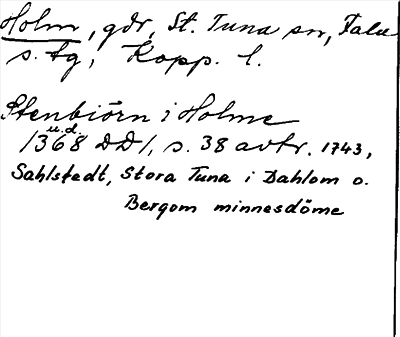 Holm, gdr, St. Tuna sn, Falu
s. tg, Kopp. l.
Stenbiörn i Holme
u.d.
1368 DD1, s. 38 avtr. 1743,
Sahlstedt, Stora Tuna i Dahlom o.
Bergom minnesdöme